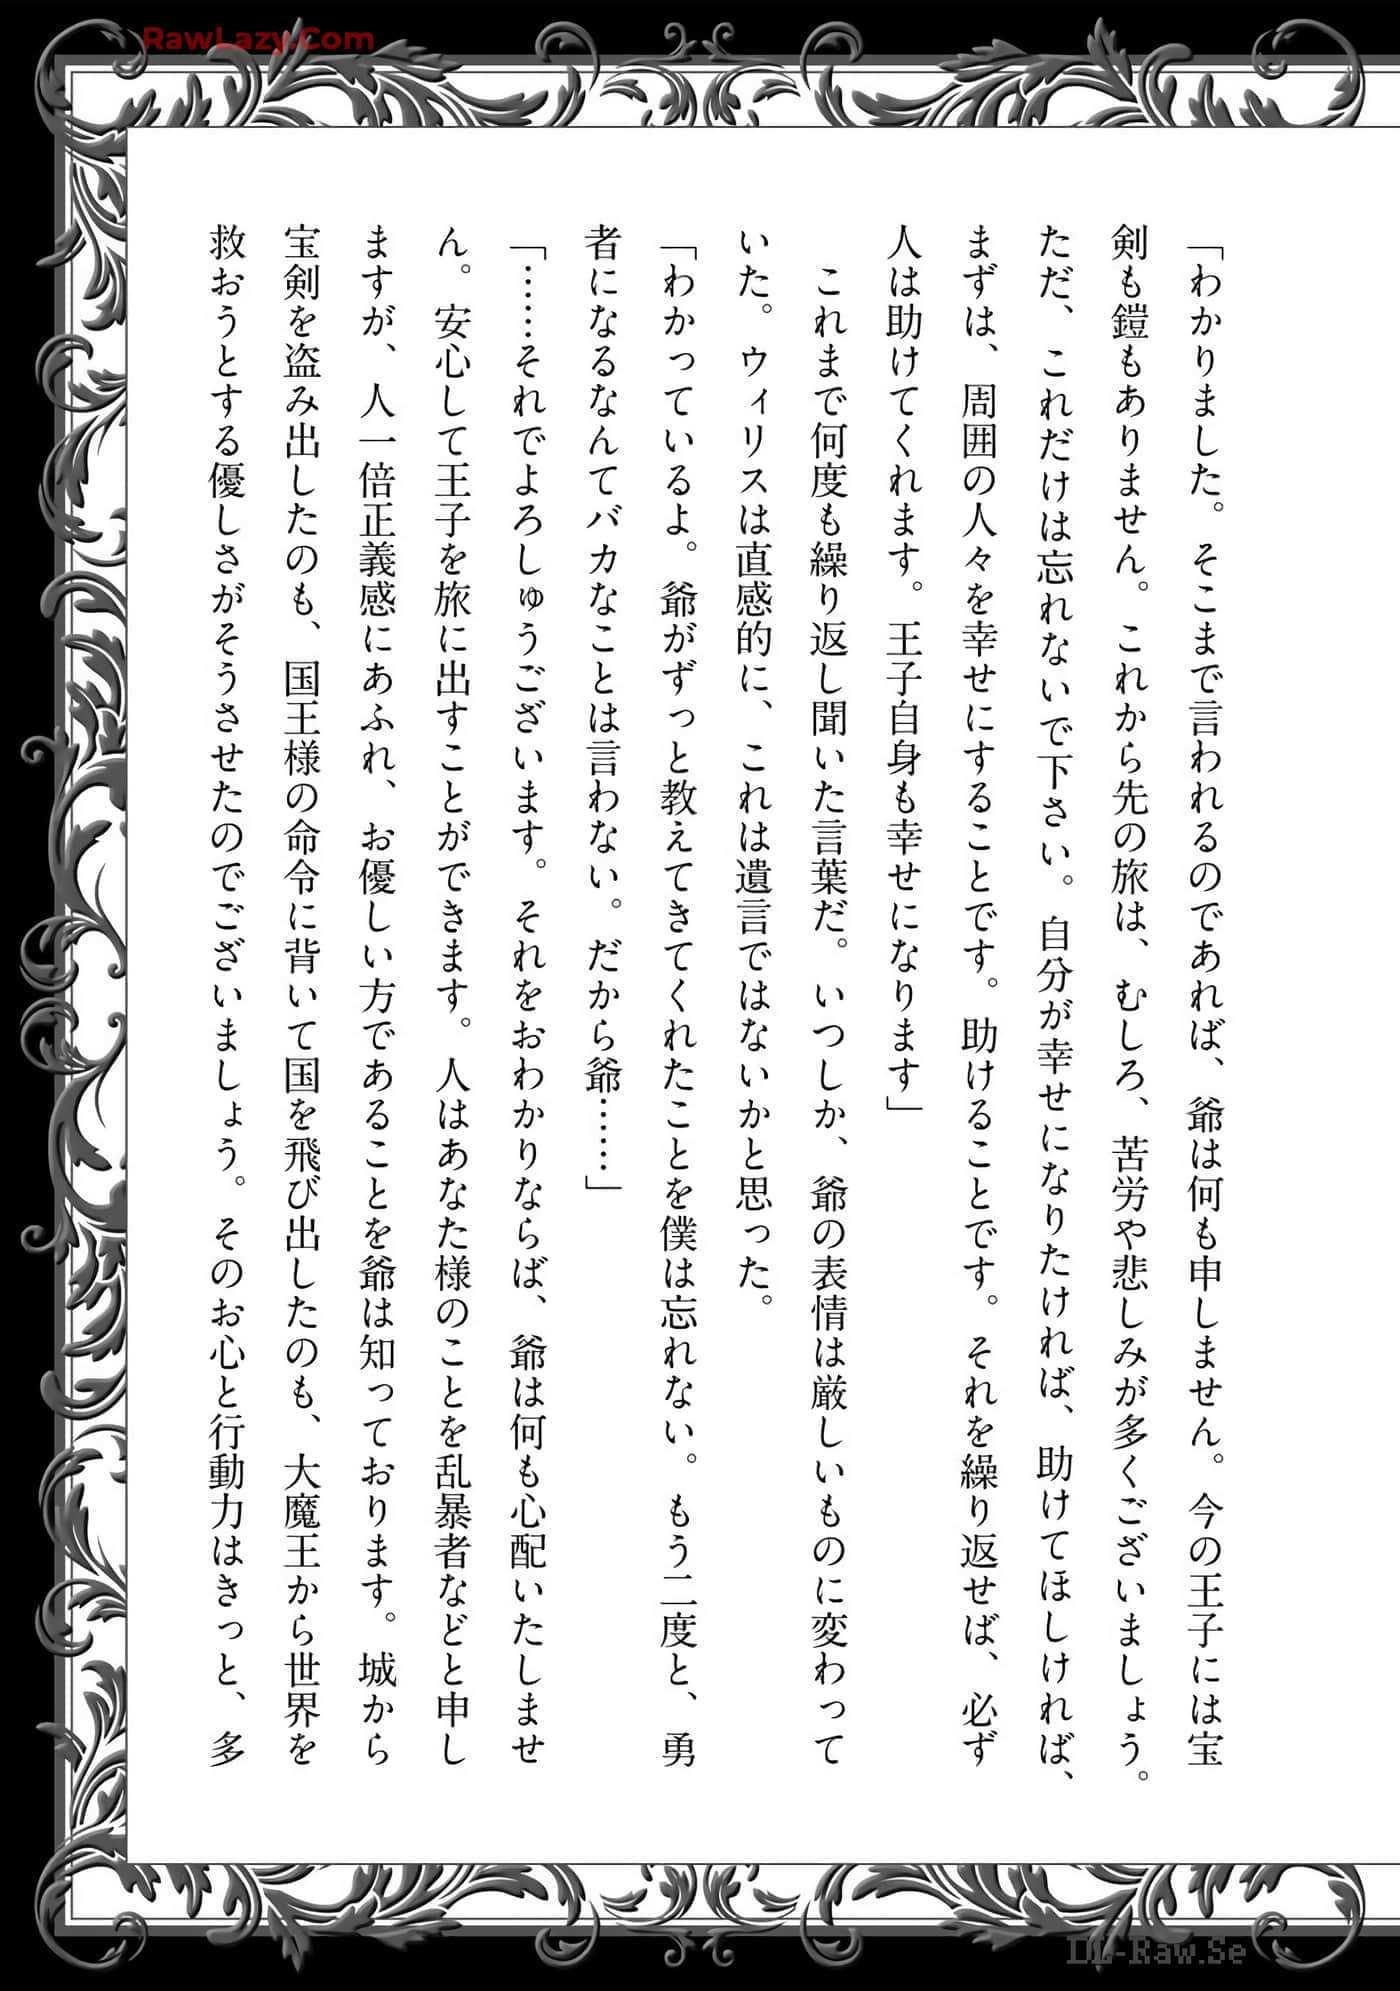 RawLazy.Com
「わかりました。そこまで言われるのであれば、爺は何も申しません。今の王子には宝
剣も鎧もありません。これから先の旅は、むしろ、苦労や悲しみが多くございましょう。
ただ、これだけは忘れないで下さい。自分が幸せになりたければ、助けてほしければ、
まずは、周囲の人々を幸せにすることです。助けることです。それを繰り返せば、必ず
人は助けてくれます。王子自身も幸せになります」
　これまで何度も繰り返し聞いた言葉だ。いつしか、爺の表情は厳しいものに変わって
いた。ウィリスは直感的に、これは遺言ではないかと思った。
「わかっているよ。爺がずっと教えてきてくれたことを僕は忘れない。もう二度と、勇
者になるなんてバカなことは言わない。だから爺……」
「……それでよろしゅうございます。それをおわかりならば、爺は何も心配いたしませ
ん。安心して王子を旅に出すことができます。人はあなた様のことを乱暴者などと申し
ますが、人一倍正義感にあふれ、お優しい方であることを爺は知っております。城から
宝剣を盗み出したのも、国王様の命令に背いて国を飛び出したのも、大魔王から世界を
救おうとする優しさがそうさせたのでございましょう。そのお心と行動力はきっと、多
DL-Raw.Se